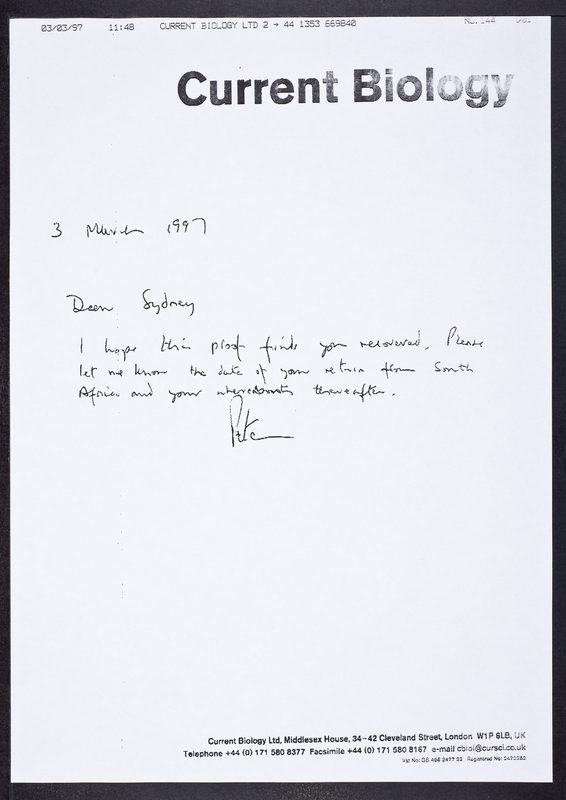 03/03/97 11:48 CURRENT BIOLOGY LTD 2 → 44 1353 669840 NO. 144
Current Biology
3 March 1997
Dear Sydney
I hope this proof finds you recovered. Please
let me know the date of your return from South
Africa and your whereabouts thereafter.
Peter
Current Biology Ltd, Middlesex House, 34–42 Cleveland Street, London W1P 6LB, UK
Telephone +44 (0) 171 580 8377 Facsimile +44 (0) 171 580 8167 e-mail cbiol@cursci.co.uk
Vat No: GB 466 2477 23 Registered No: